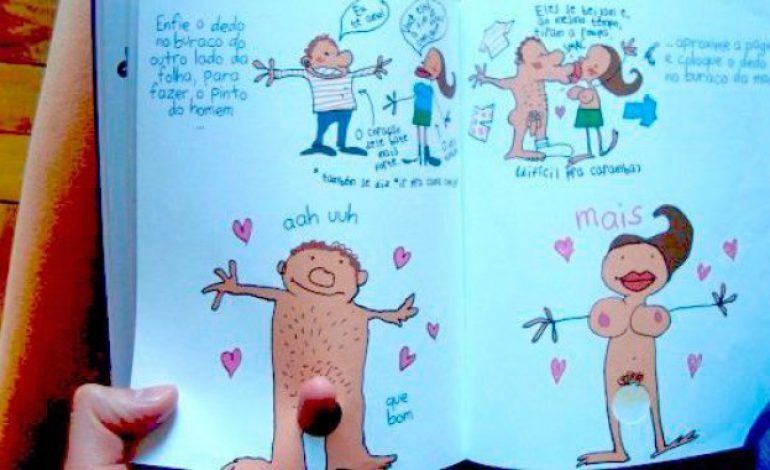 Enfie o dedo
no buraco do
outro lado da
folha, para
fazer o pinto
do homem
...
Eu
te amo!
o coração
dele bate
mais
forte
*também se diz "ir pra cama com"
aah uuh
que
bom
Eles se beijam e,
ao mesmo tempo,
tiram a roupa
(difícil pra caramba)
...aproxime a página
e coloque o dedo
no buraco da
mais